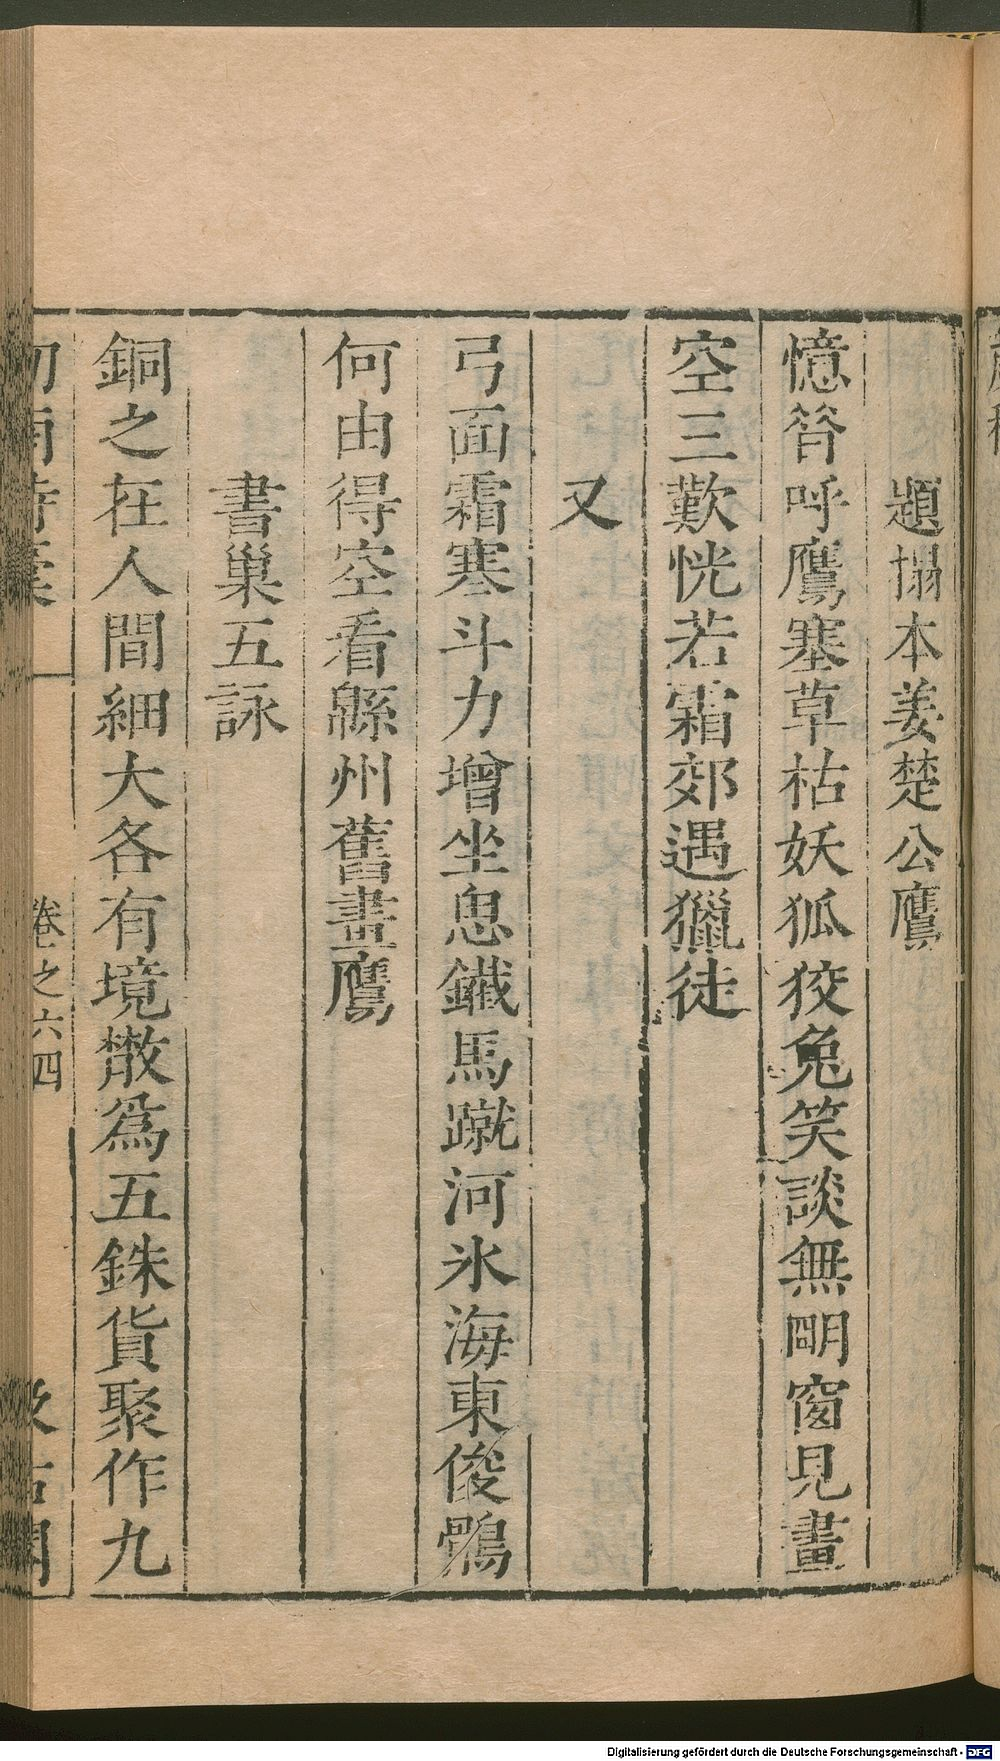 題搨本姜楚公鷹
憶筜呼鷹塞草枯妖狐狡兔笑談無明窗見畫
空三歎恍若霜郊遇獵徒
又
弓面霜寒斗力增坐思鐵馬蹴河氷海東俊鶻
何由得空看緜州舊畫鷹
書巢五詠
銅之在人間細大各有境散爲五銖貨聚作九
卷之六四
Digitalisierung gefördert durch die Deutsche Forschungsgemeinschaft - DFG